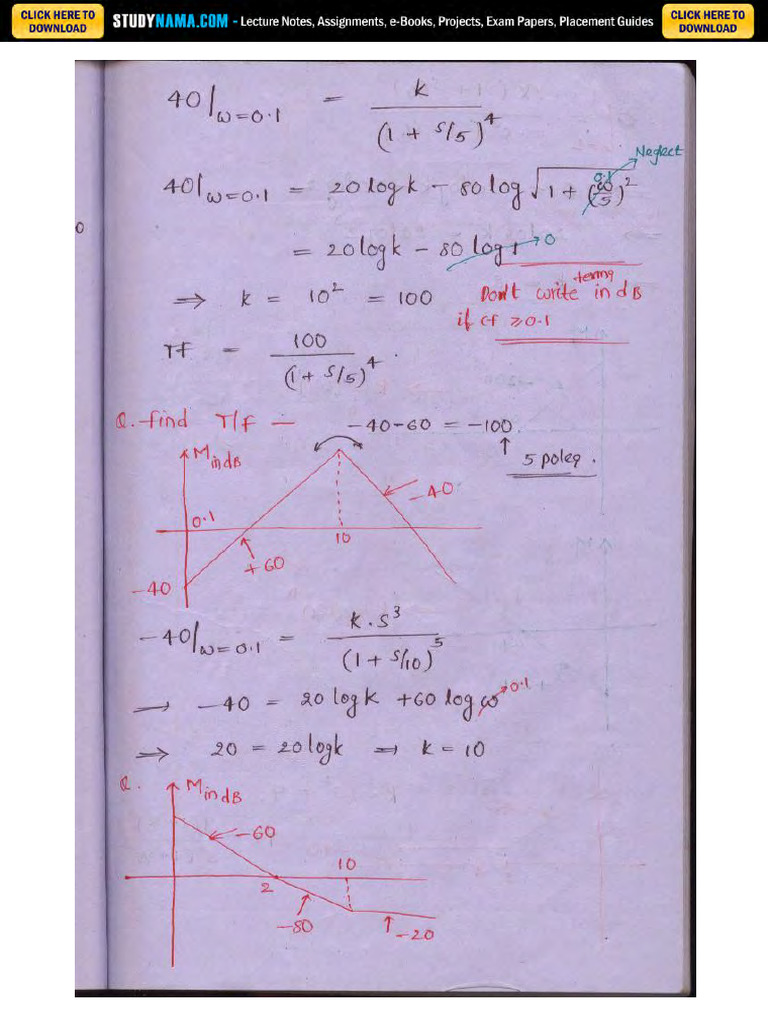 CLICK HERE TO DOWNLOAD STUDYNAMA.COM - Lecture Notes, Assignments, e-Books, Projects, Exam Papers, Placement Guides CLICK HERE TO DOWNLOAD
40|ω=0.1 = k / (1 + s/5)^4
Neglect
40|ω=0.1 = 20 log k - 80 log √1 + (ω/5)^2 0.1
= 20 log k - 80 log 1 → 0
⇒ k = 10^2 = 100
Don't write terms in dB
if cf ≥ 0.1
TF = 100 / (1 + s/5)^4 .
Q. find T/f — -40-60 = -100.
↑ 5 poles.
M in dB
-40
0.1
10
+60
-40
-40|ω=0.1 = k.s^3 / (1 + s/10)^5
→ -40 = 20 log k + 60 log ω → 0.1
⇒ 20 = 20 log k ⇒ k = 10
Q. M in dB
-60
10
2
-80
-20